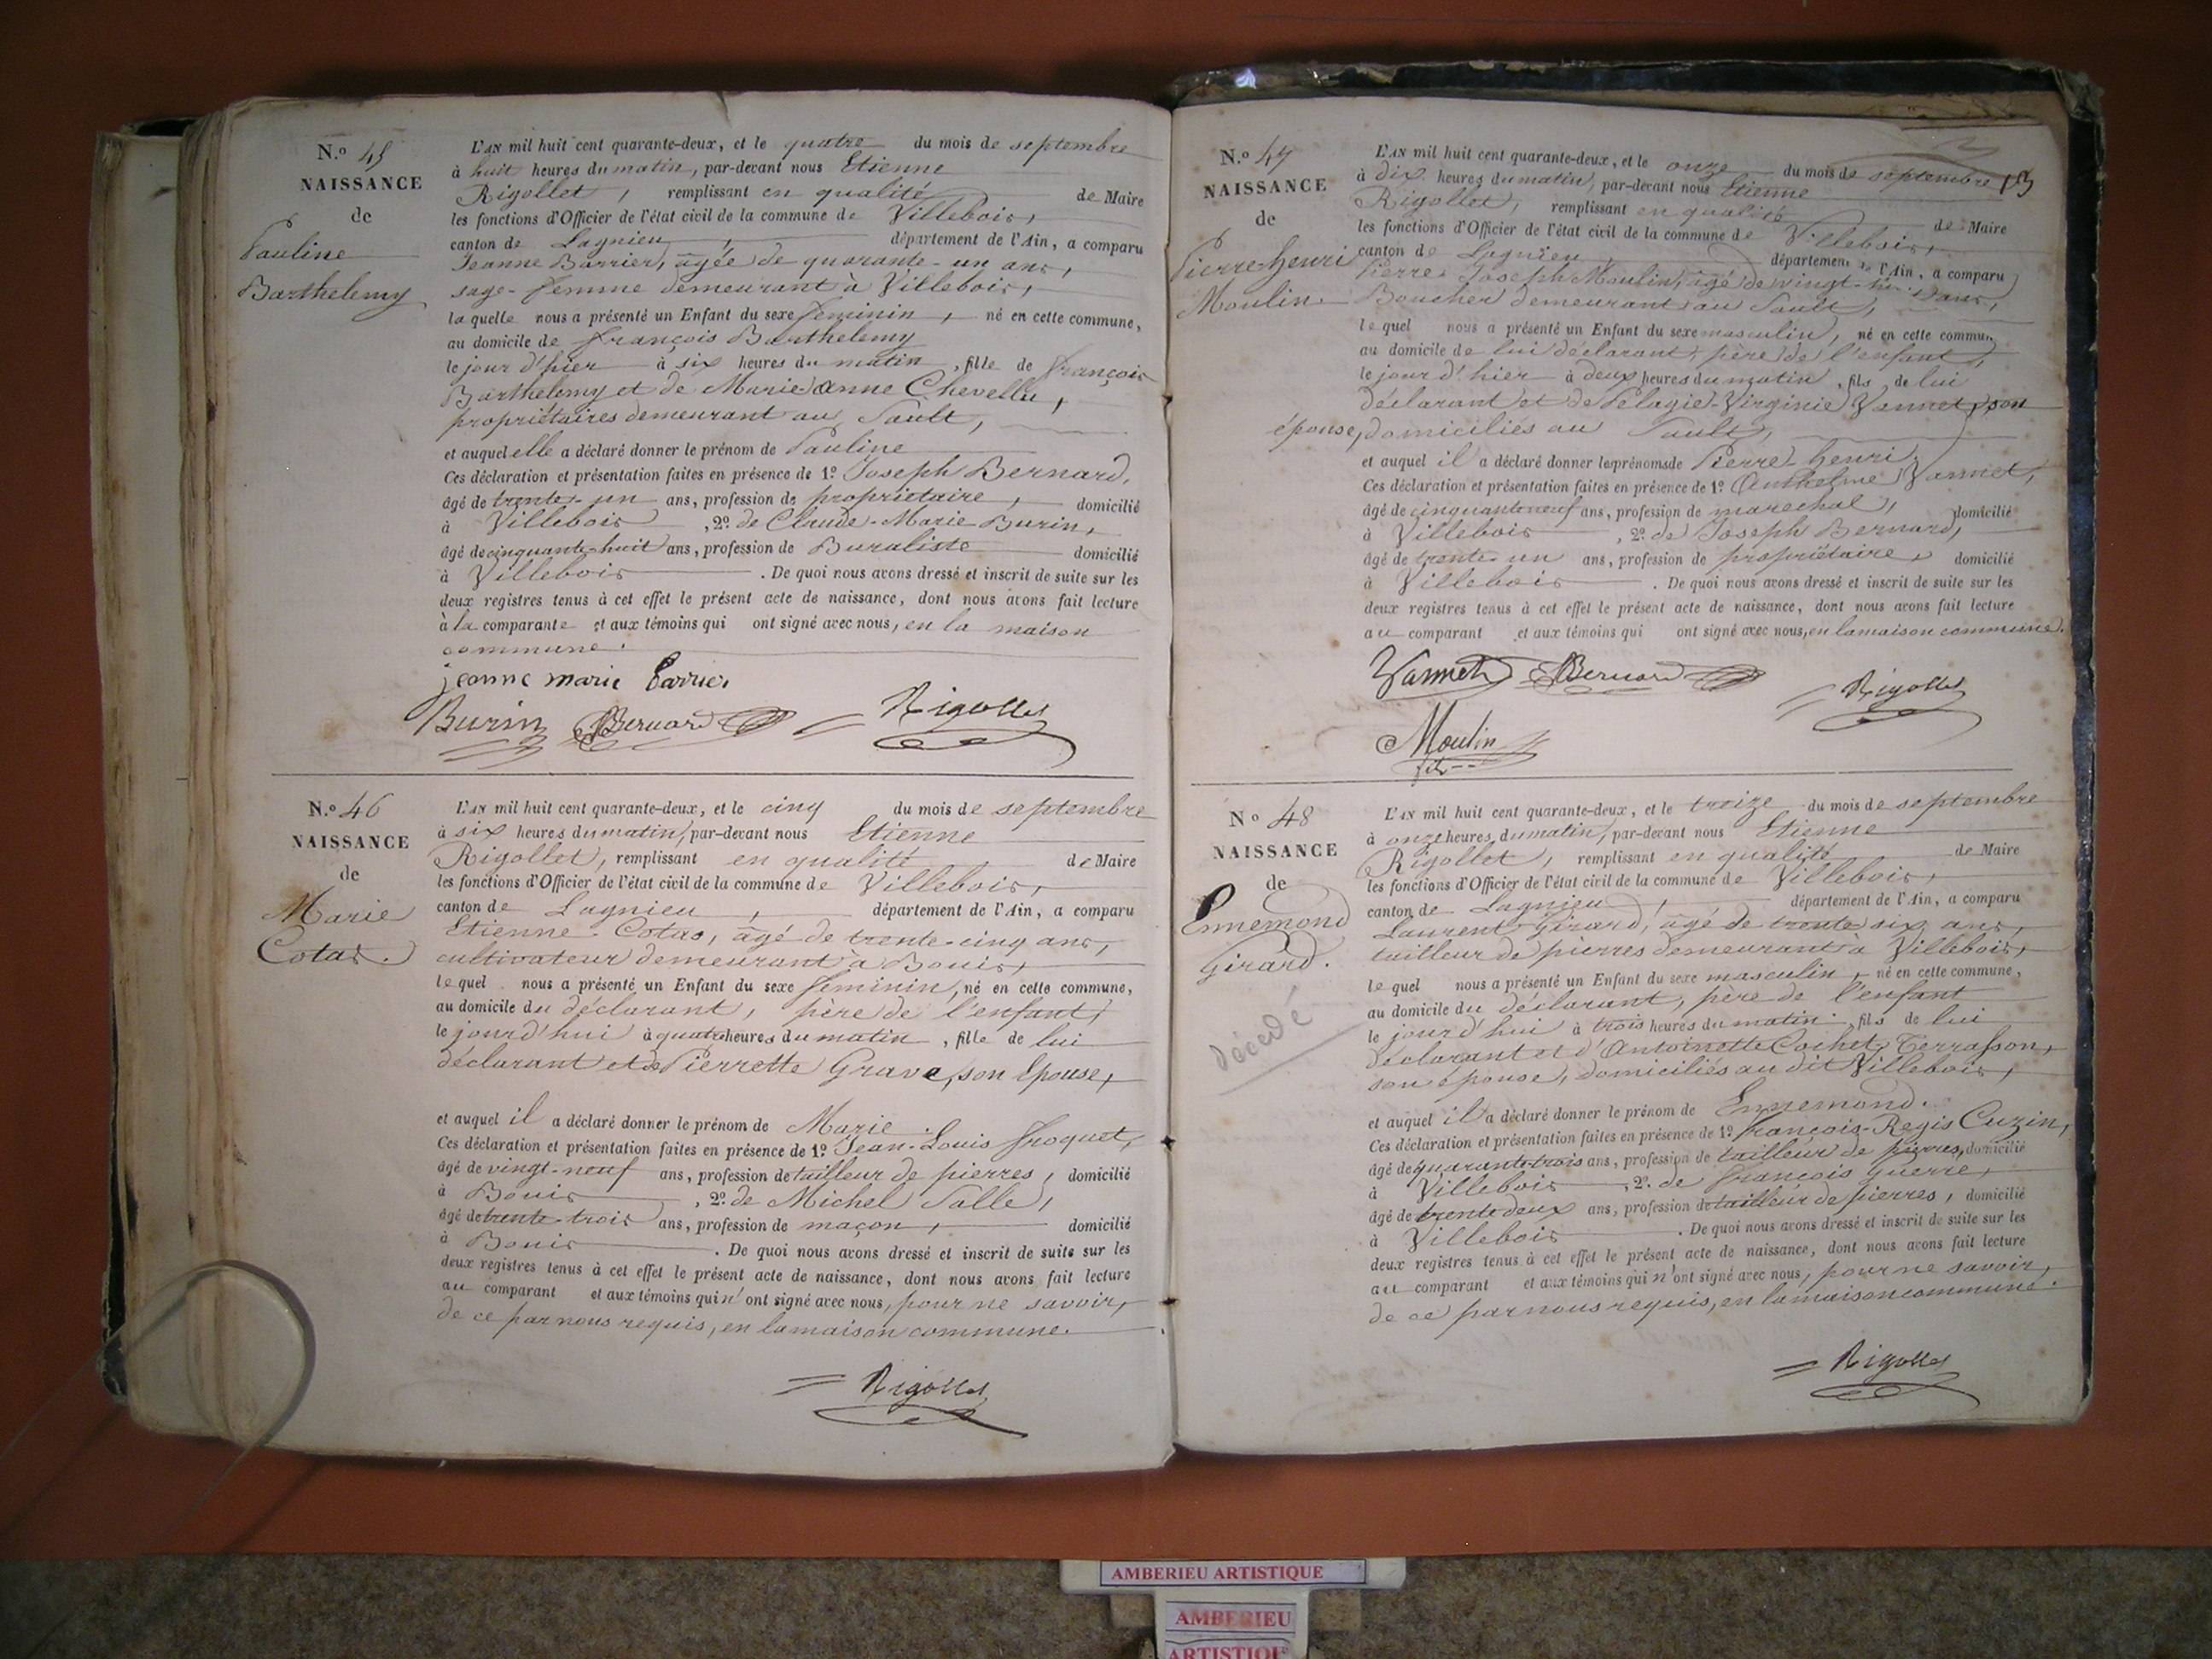 N.º 45
NAISSANCE
de
Pauline
Barthelemy
L'AN mil huit cent quarante-deux, et le quatre du mois de septembre
à huit heures du matin, par-devant nous Etienne
Rigollet, remplissant en qualité de Maire
les fonctions d'Officier de l'état civil de la commune de Villebois,
canton de Lagnieu, département de l'Ain, a comparu
Jeanne Barrier, âgée de quarante-un ans,
sage-femme demeurant à Villebois,
la quelle nous a présenté un Enfant du sexe féminin, né en cette commune,
au domicile de françois Barthelemy
le jour d'hier à six heures du matin, fille de françois
Barthelemy et de Marie anne
propriétaires demeurant au Sault,
et auquel elle a déclaré donner le prénom de Pauline
Ces déclaration et présentation faites en présence de 1º Joseph Bernard,
âgé de trente-un ans, profession de propriétaire, domicilié
à Villebois, 2º de Claude-Marie Burin,
âgé de cinquante-huit ans, profession de Buraliste domicilié
à Villebois. De quoi nous avons dressé et inscrit de suite sur les
deux registres tenus à cet effet le présent acte de naissance, dont nous avons fait lecture
à la comparante et aux témoins qui ont signé avec nous, en la maison
commune.
jeanne marie barrier
Burin Bernard Rigollet
N.º 46
NAISSANCE
de
Marie
Cotas.
L'AN mil huit cent quarante-deux, et le cinq du mois de septembre
à six heures du matin, par-devant nous Etienne
Rigollet, remplissant en qualité de Maire
les fonctions d'Officier de l'état civil de la commune de Villebois,
canton de Lagnieu, département de l'Ain, a comparu
Etienne Cotas, âgé de trente-cinq ans,
cultivateur demeurant à Bouis,
le quel nous a présenté un Enfant du sexe féminin, né en cette commune,
au domicile du déclarant, père de l'enfant,
le jourd'hui à quatre heures du matin, fille de lui
déclarant et de Pierrette Grave, son épouse,
et auquel il a déclaré donner le prénom de Marie.
Ces déclaration et présentation faites en présence de 1º Jean-Louis froquet,
âgé de vingt-neuf ans, profession de tailleur de pierres, domicilié
à Bouis, 2º de Michel Salle,
âgé de trente-trois ans, profession de maçon, domicilié
à Bouis. De quoi nous avons dressé et inscrit de suite sur les
deux registres tenus à cet effet le présent acte de naissance, dont nous avons fait lecture
au comparant et aux témoins qui n'ont signé avec nous, pour ne savoir,
de ce par nous requis, en la maison commune.
Rigollet
N.º 47
NAISSANCE
de
Pierre-henri
Moulin.
L'AN mil huit cent quarante-deux, et le onze du mois de septembre
à dix heures du matin, par-devant nous Etienne
Rigollet, remplissant en qualité de Maire
les fonctions d'Officier de l'état civil de la commune de Villebois,
canton de Lagnieu, département de l'Ain, a comparu
Pierre-Joseph Moulin, âgé de vingt-huit ans,
Boucher demeurant au Sault,
le quel nous a présenté un Enfant du sexe masculin, né en cette commune
au domicile de lui déclarant, père de l'enfant,
le jour d'hier à deux heures du matin, fils de lui
déclarant et de Pelagie-Virginie Vannet, son
épouse, domiciliés au Sault,
et auquel il a déclaré donner les prénoms de Pierre-henri.
Ces déclaration et présentation faites en présence de 1º Anthelme Vannet,
âgé de cinquante neuf ans, profession de marechal, domicilié
à Villebois, 2º de Joseph Bernard,
âgé de trente-un ans, profession de propriétaire, domicilié
à Villebois. De quoi nous avons dressé et inscrit de suite sur les
deux registres tenus à cet effet le présent acte de naissance, dont nous avons fait lecture
au comparant et aux témoins qui ont signé avec nous, en la maison commune.
Vannet Bernard Rigollet
Moulin
fils
Nº 48
NAISSANCE
de
Ennemond
Girard.
décédé
L'AN mil huit cent quarante-deux, et le treize du mois de septembre
à onze heures du matin, par-devant nous Etienne
Rigollet, remplissant en qualité de Maire
les fonctions d'Officier de l'état civil de la commune de Villebois,
canton de Lagnieu, département de l'Ain, a comparu
Laurent Girard, âgé de trente six ans,
tailleur de pierres demeurant à Villebois,
le quel nous a présenté un Enfant du sexe masculin, né en cette commune,
au domicile du déclarant, père de l'enfant
le jourd'hui à trois heures du matin, fils de lui
déclarant et d'Antoinette Cochet Terrasson,
son épouse, domiciliés au dit Villebois,
et auquel il a déclaré donner le prénom de Ennemond.
Ces déclaration et présentation faites en présence de 1º françois-Regis Cuzin,
âgé de quarante trois ans, profession de tailleur de pierres, domicilié
à Villebois, 2º de françois guerre,
âgé de trente deux ans, profession de tailleur de pierres, domicilié
à Villebois. De quoi nous avons dressé et inscrit de suite sur les
deux registres tenus à cet effet le présent acte de naissance, dont nous avons fait lecture
au comparant et aux témoins qui n'ont signé avec nous, pour ne savoir,
de ce par nous requis, en la maison commune.
Rigollet
AMBERIEU ARTISTIQUE
AMBERIEU
ARTISTIQUE